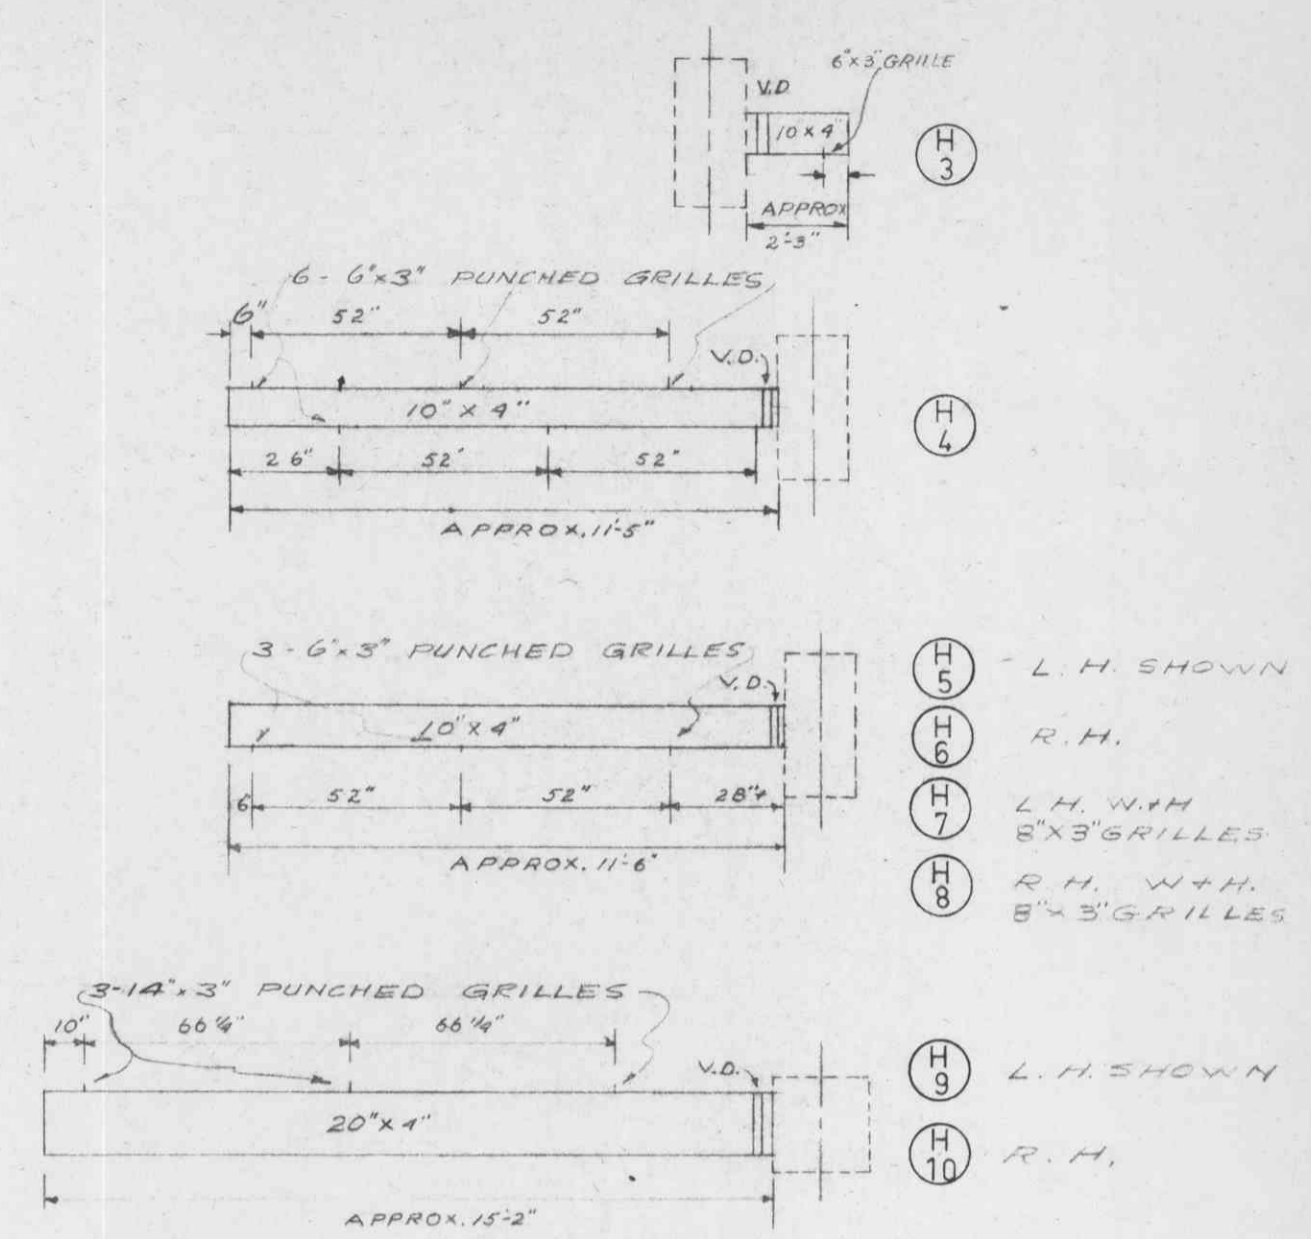 6"x3" GRILLE
V.D.
10 x 4
H
3
APPROX
2'-3"
6 - 6"x3" PUNCHED GRILLES
6" 52" 52"
V.D.
10" X 4"
H
4
26" 52" 52"
APPROX. 11'-5"
3 - 6"x3" PUNCHED GRILLES
V.D.
10" X 4"
6" 52" 52" 28"+
APPROX. 11'-6"
H
5
L.H. SHOWN
H
6
R.H.
H
7
L.H. W+H
8"X3" GRILLES
H
8
R.H. W+H.
8"X3" GRILLES
3-14"x3" PUNCHED GRILLES
10" 66 1/4" 66 1/4"
V.D.
20" X 4"
APPROX. 15'-2"
H
9
L.H. SHOWN
H
10
R.H.